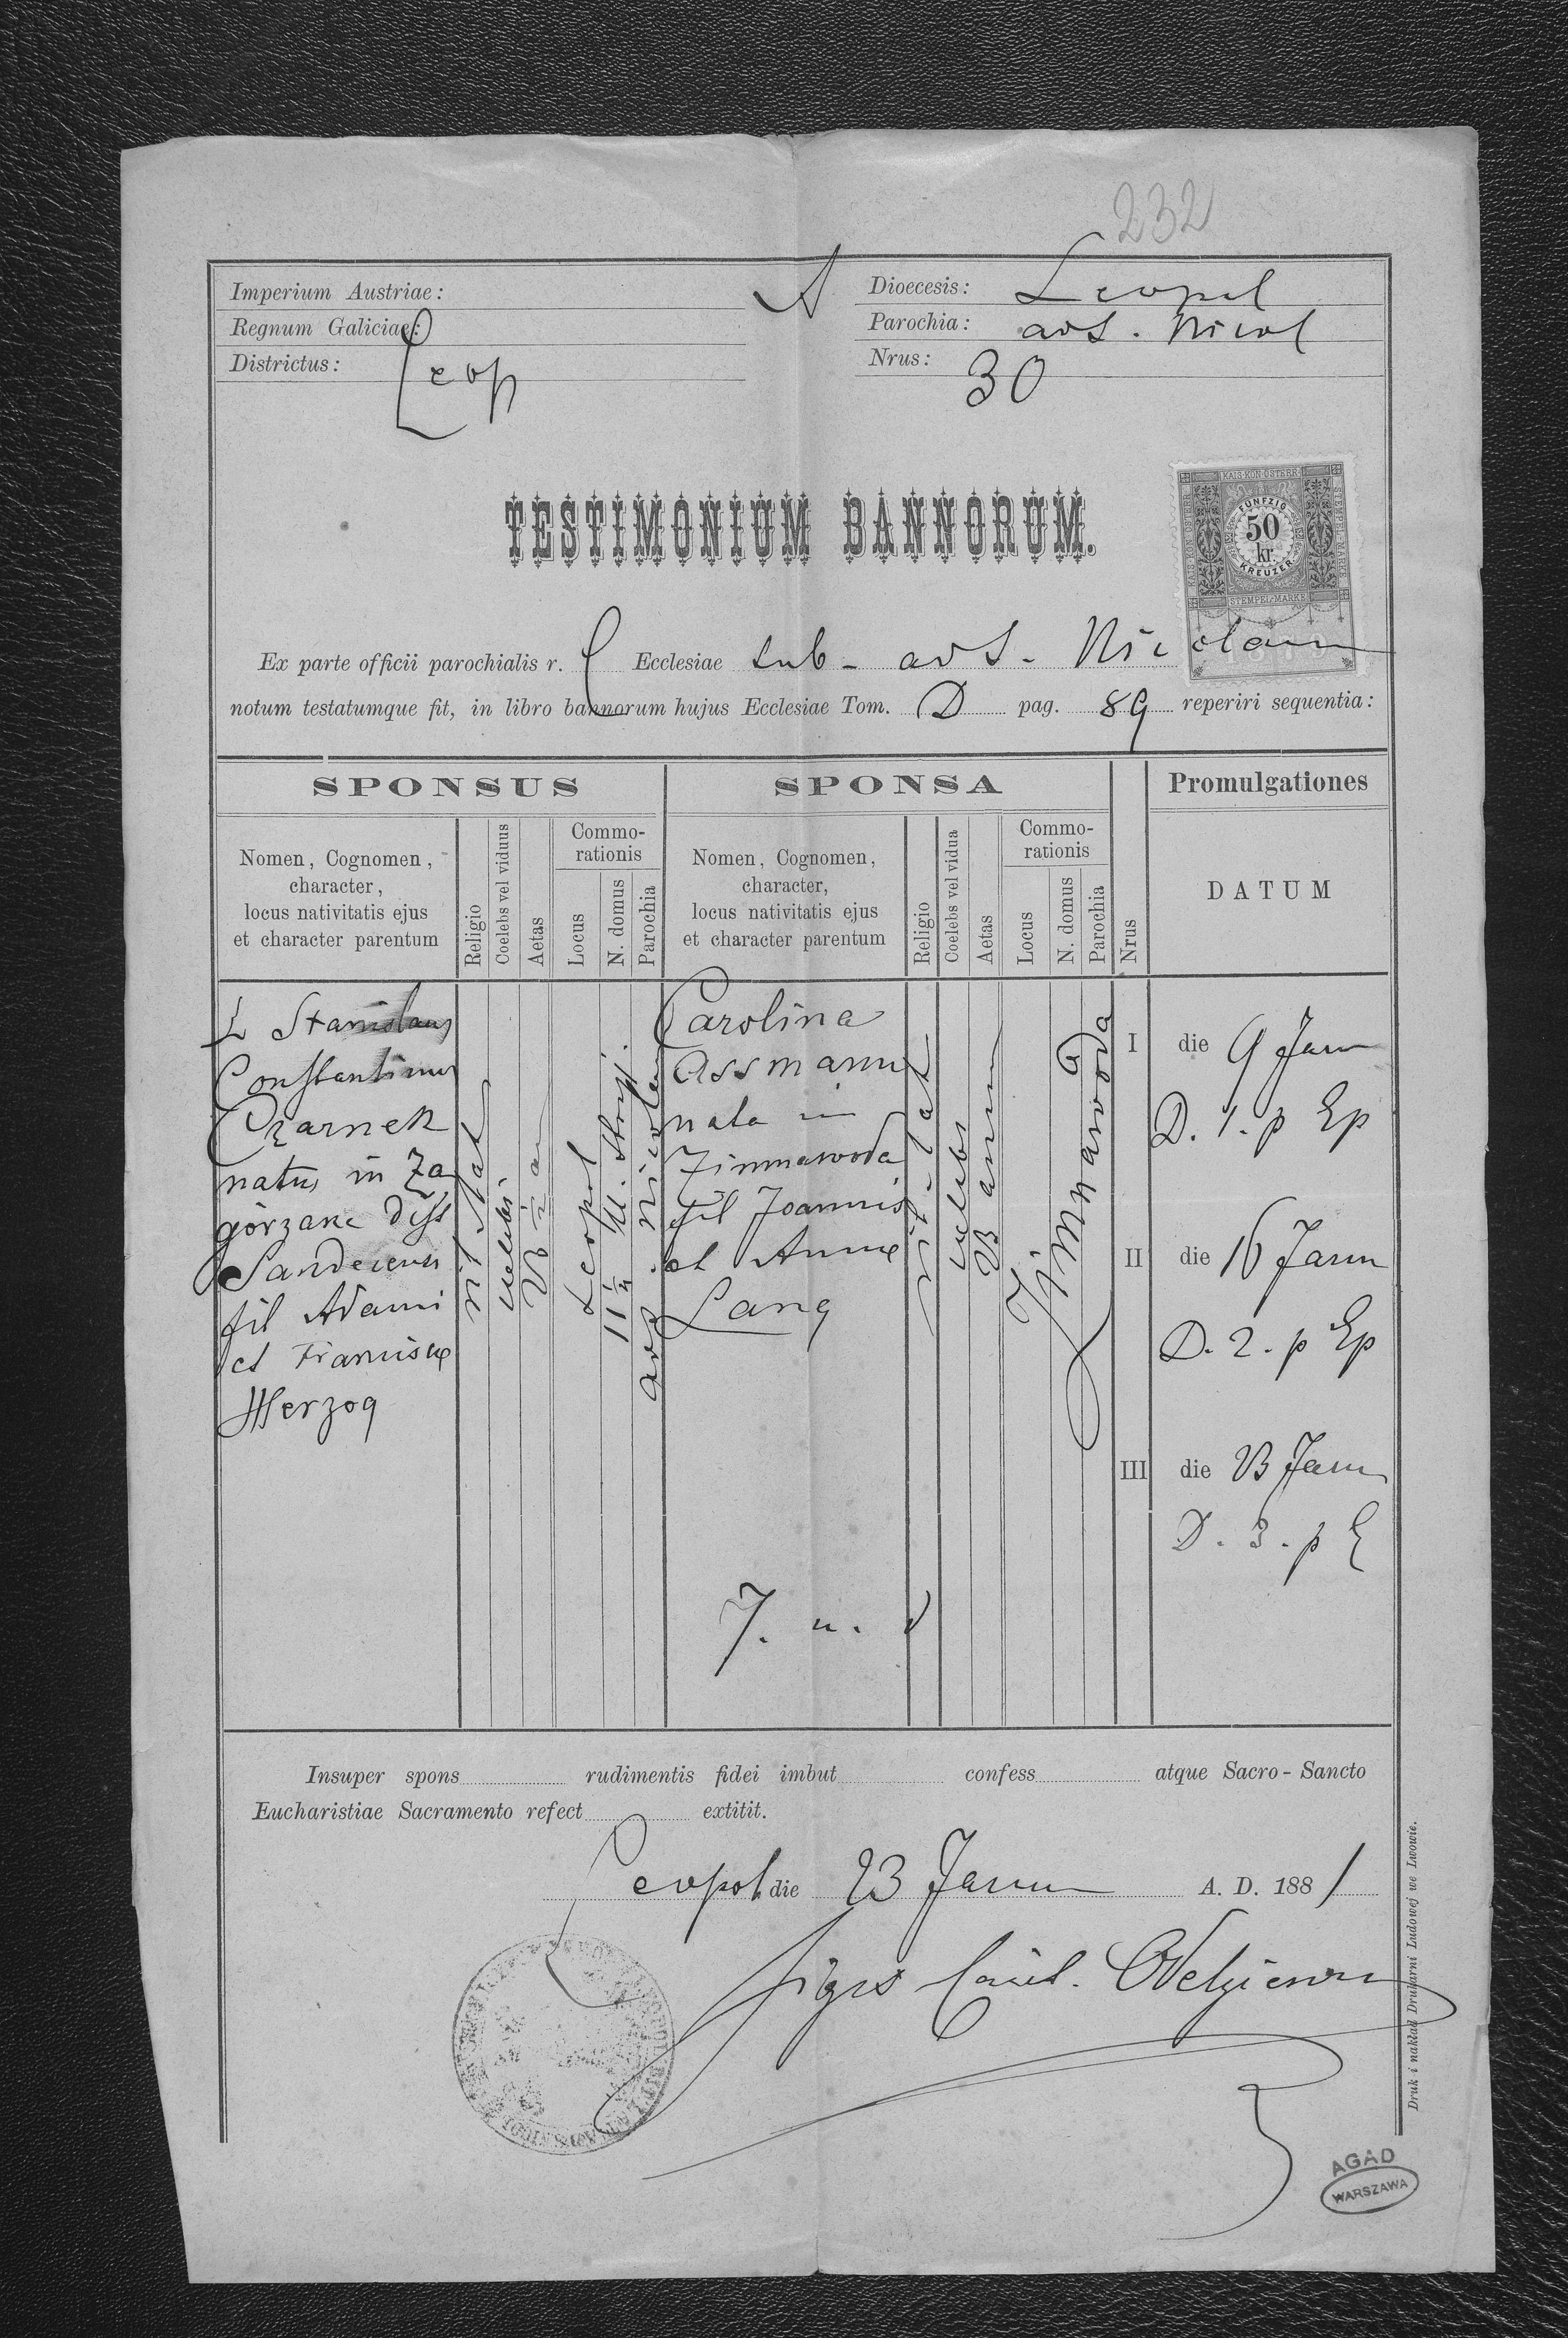 232
Imperium Austriae:
Regnum Galiciae:
Districtus: Leop
Dioecesis: Leopol
Parochia: ad S. Nicol
Nrus: 30
KAIS. KÖN. ÖSTERR.
FÜNFZIG
50
kr.
KREUZER
STEMPEL-MARKE
TESTIMONIUM BANNORUM.
Ex parte officii parochialis r. l Ecclesiae sub - ad S. Nicolaum
notum testatumque fit, in libro bannorum hujus Ecclesiae Tom. D pag. 89 reperiri sequentia:
SPONSUS
SPONSA
Promulgationes
Nomen, Cognomen,
character,
locus nativitatis ejus
et character parentum
Religio
Coelebs vel viduus
Aetas
Commo-
rationis
Locus
N. domus
Parochia
Nomen, Cognomen,
character,
locus nativitatis ejus
et character parentum
Religio
Coelebs vel vidua
Aetas
Commo-
rationis
Locus
N. domus
Parochia
Nrus
DATUM
Stanislaus
Constantinus
Czarnek
natus in Za
górzane dist
Sandecensis
fil Adami
et Franciscæ
Herzog
rit lat
celebs
Leopol
11 1/4
ad S. Nicolaum
Carolina
Assmann
nata in
Zimnawoda
fil Joannis
et Annæ
Lang
rit. lat
celebs
Zimnawoda
I die 9 Janu
D. 1. p Ep
II die 16 Janu
D. 2. p Ep
III die 23 Janu
D. 3. p E
Insuper spons rudimentis fidei imbut confess atque Sacro-Sancto
Eucharistiae Sacramento refect extitit.
Leopol. die 23 Janu A. D. 1881
Druk i nakład Drukarni Ludowej we Lwowie.
AGAD
WARSZAWA